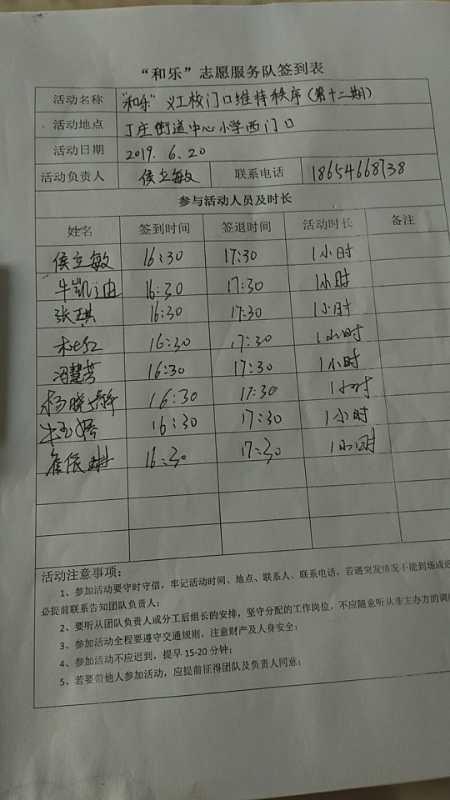 “和乐”志愿服务队签到表
活动名称 “和乐”义工校门口维持秩序(第十二期)
活动地点 丁庄街道中心小学西门口
活动日期 2019. 6.20
活动负责人 侯立敏 联系电话 18654668738
参与活动人员及时长
姓名 签到时间 签退时间 活动时长 备注
侯立敏 16:30 17:30 1小时
牛凯迪 16:30 17:30 1小时
张琪 16:30 17:30 1小时
16:30 17:30 1小时
冯慧芳 16:30 17:30 1小时
杨晓婷 16:30 17:30 1小时
16:30 17:30 1小时
16:30 17:30 1小时
活动注意事项:
1、参加活动要守时守信,牢记活动时间、地点、联系人、联系电话,若遇突发情况不能到场或迟
必提前联系告知团队负责人;
2、要听从团队负责人或分工后组长的安排,坚守分配的工作岗位,不应随意听从非主办方的调
3、参加活动全程要遵守交通规则,注意财产及人身安全;
4、参加活动不应迟到,提早 15-20 分钟;
5、若要带他人参加活动,应提前征得团队及负责人同意;